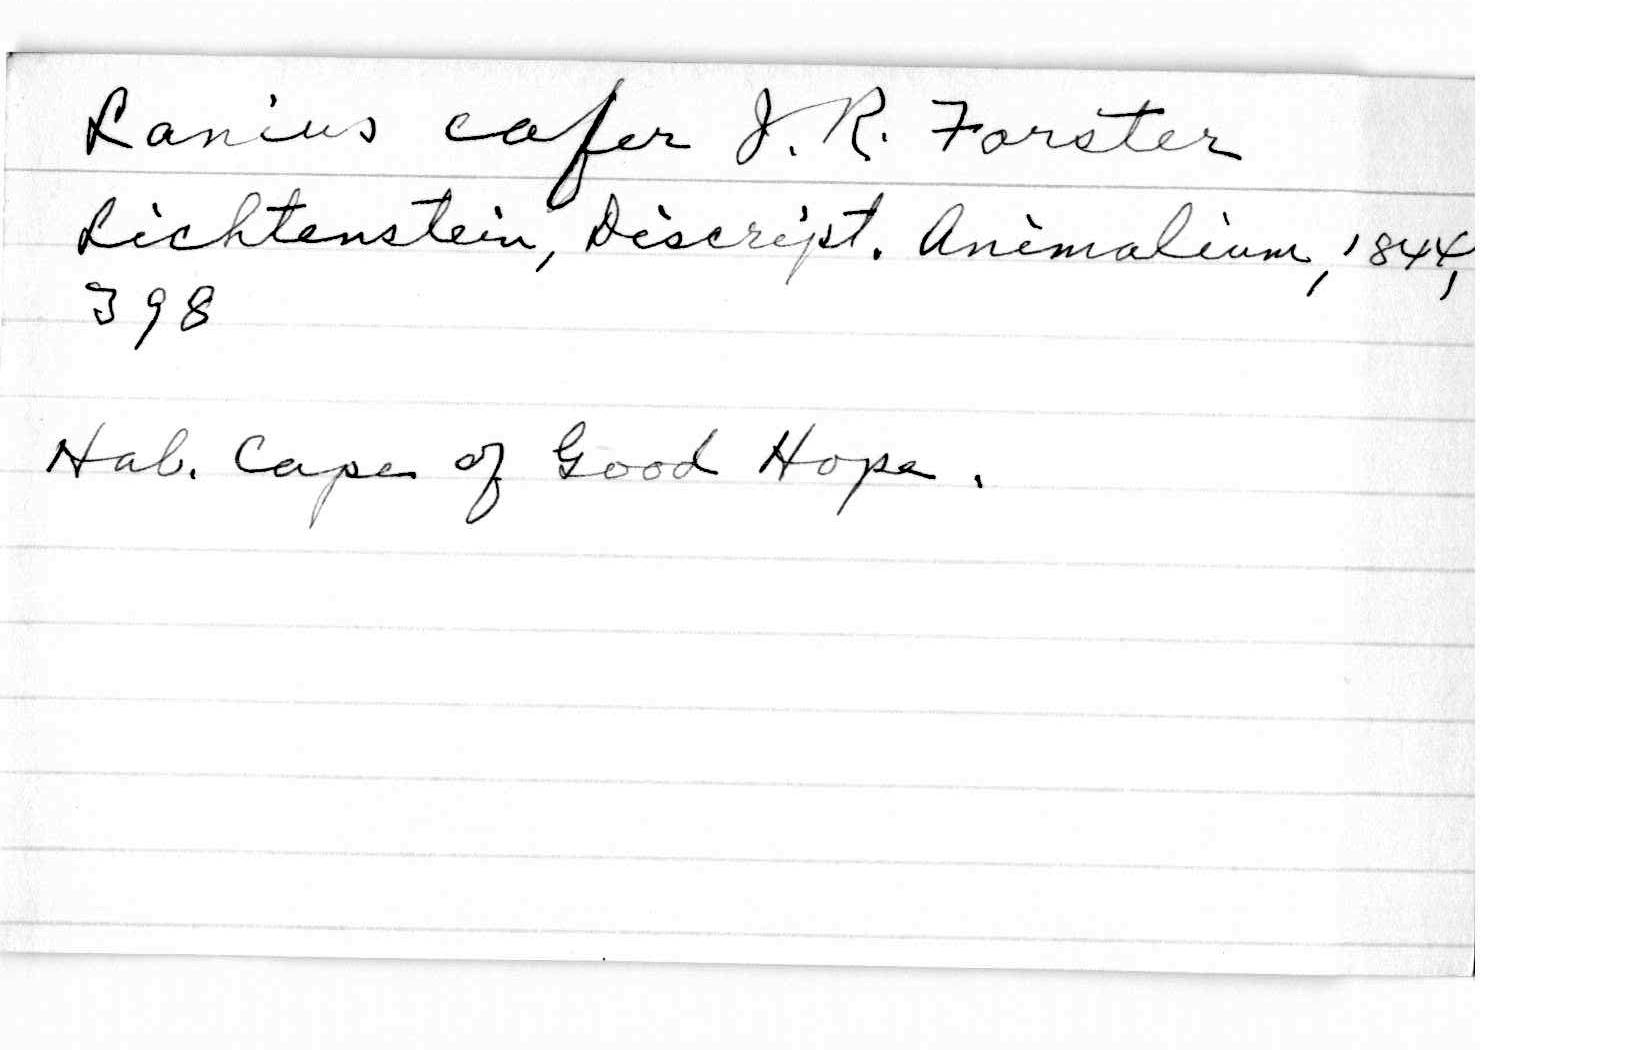 Lanius cafer J. R. Forster
Lichtenstein, Discript. Animalium, 1844,
398
Hab. Cape of Good Hope.